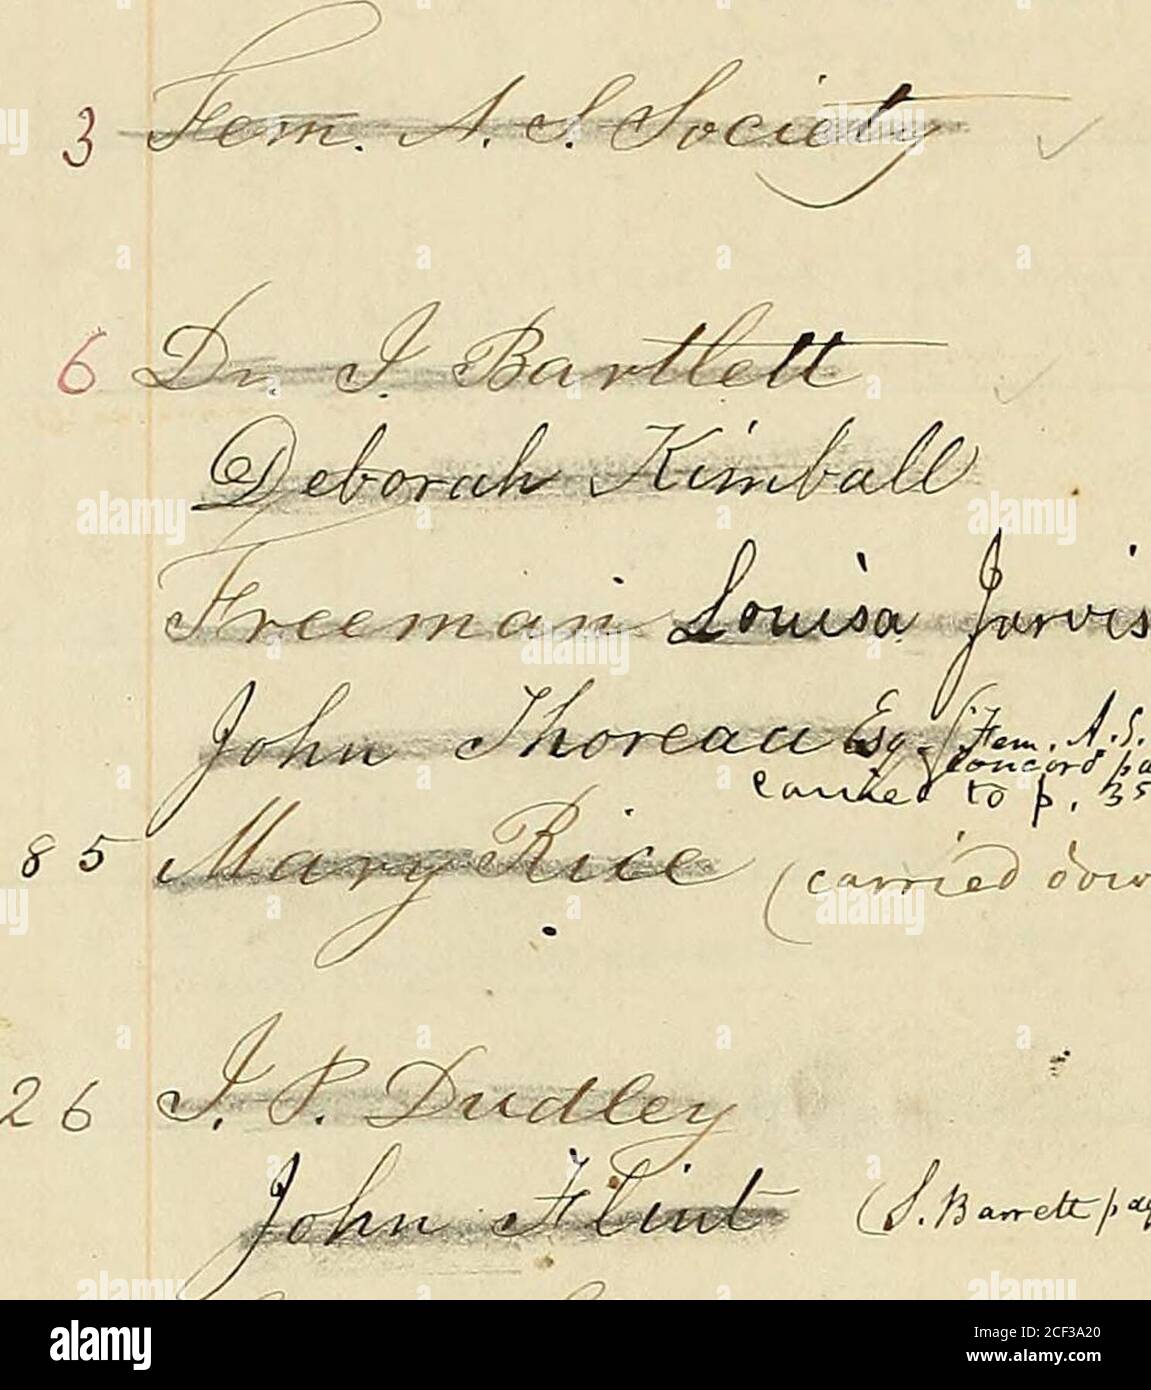 3 Fem. A. S. Society ✓
6 Dr. J. Bartlett ✓
Deborah Kimball
Freeman Louisa Jarvis
John Thoreau Esq. (Fem. A. S.
Concord pa
carried to p. 35
85 Mary Rice (carried dow
26 J. P. Dudley
John Flint (S. Barrett pag
alamy
Image ID: 2CF3A20
www.alamy.com